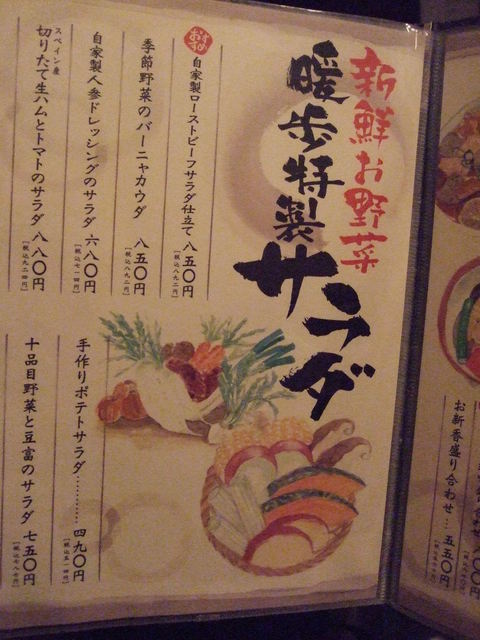 新鮮お野菜
暖歩特製
サラダ
おすすめ
自家製ローストビーフサラダ仕立て 八五〇円
[税込八九二円]
季節野菜のバーニャカウダ 八五〇円
[税込八九二円]
自家製人参ドレッシングのサラダ 六八〇円
[税込七一四円]
スペイン産
切りたて生ハムとトマトのサラダ 八八〇円
[税込九二四円]
手作りポテトサラダ………… 四九〇円
[税込五一四円]
十品目野菜と豆富のサラダ 七五〇円
[税込七八七円]
お新香盛り合わせ… 五五〇円